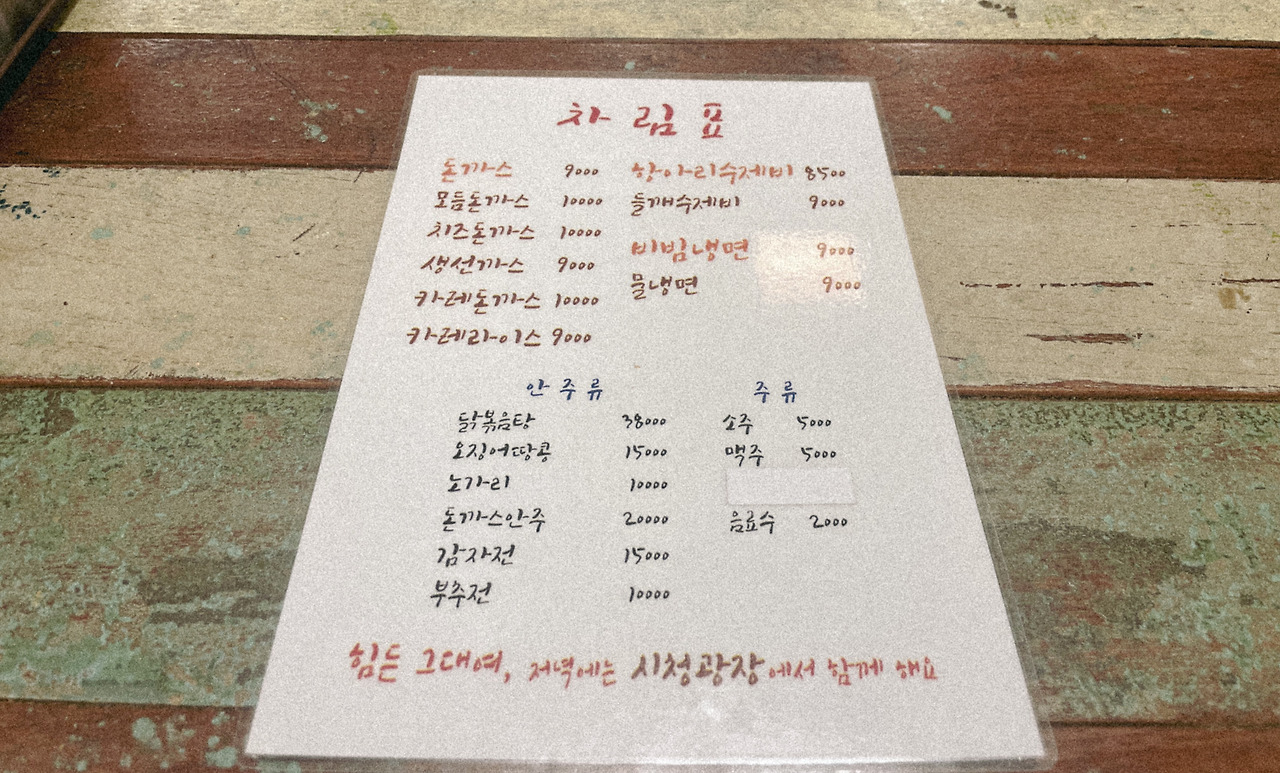 차림표
돈까스 9000
모듬돈까스 10000
치즈돈까스 10000
생선까스 9000
카레돈까스 10000
카레라이스 9000
항아리수제비 8500
들깨수제비 9000
비빔냉면 9000
물냉면 9000
안주류
닭볶음탕 38000
오징어땅콩 15000
노가리 10000
돈까스안주 20000
감자전 15000
부추전 10000
주류
소주 5000
맥주 5000
음료수 2000
힘든 그대여, 저녁에는 시청광장에서 함께 해요